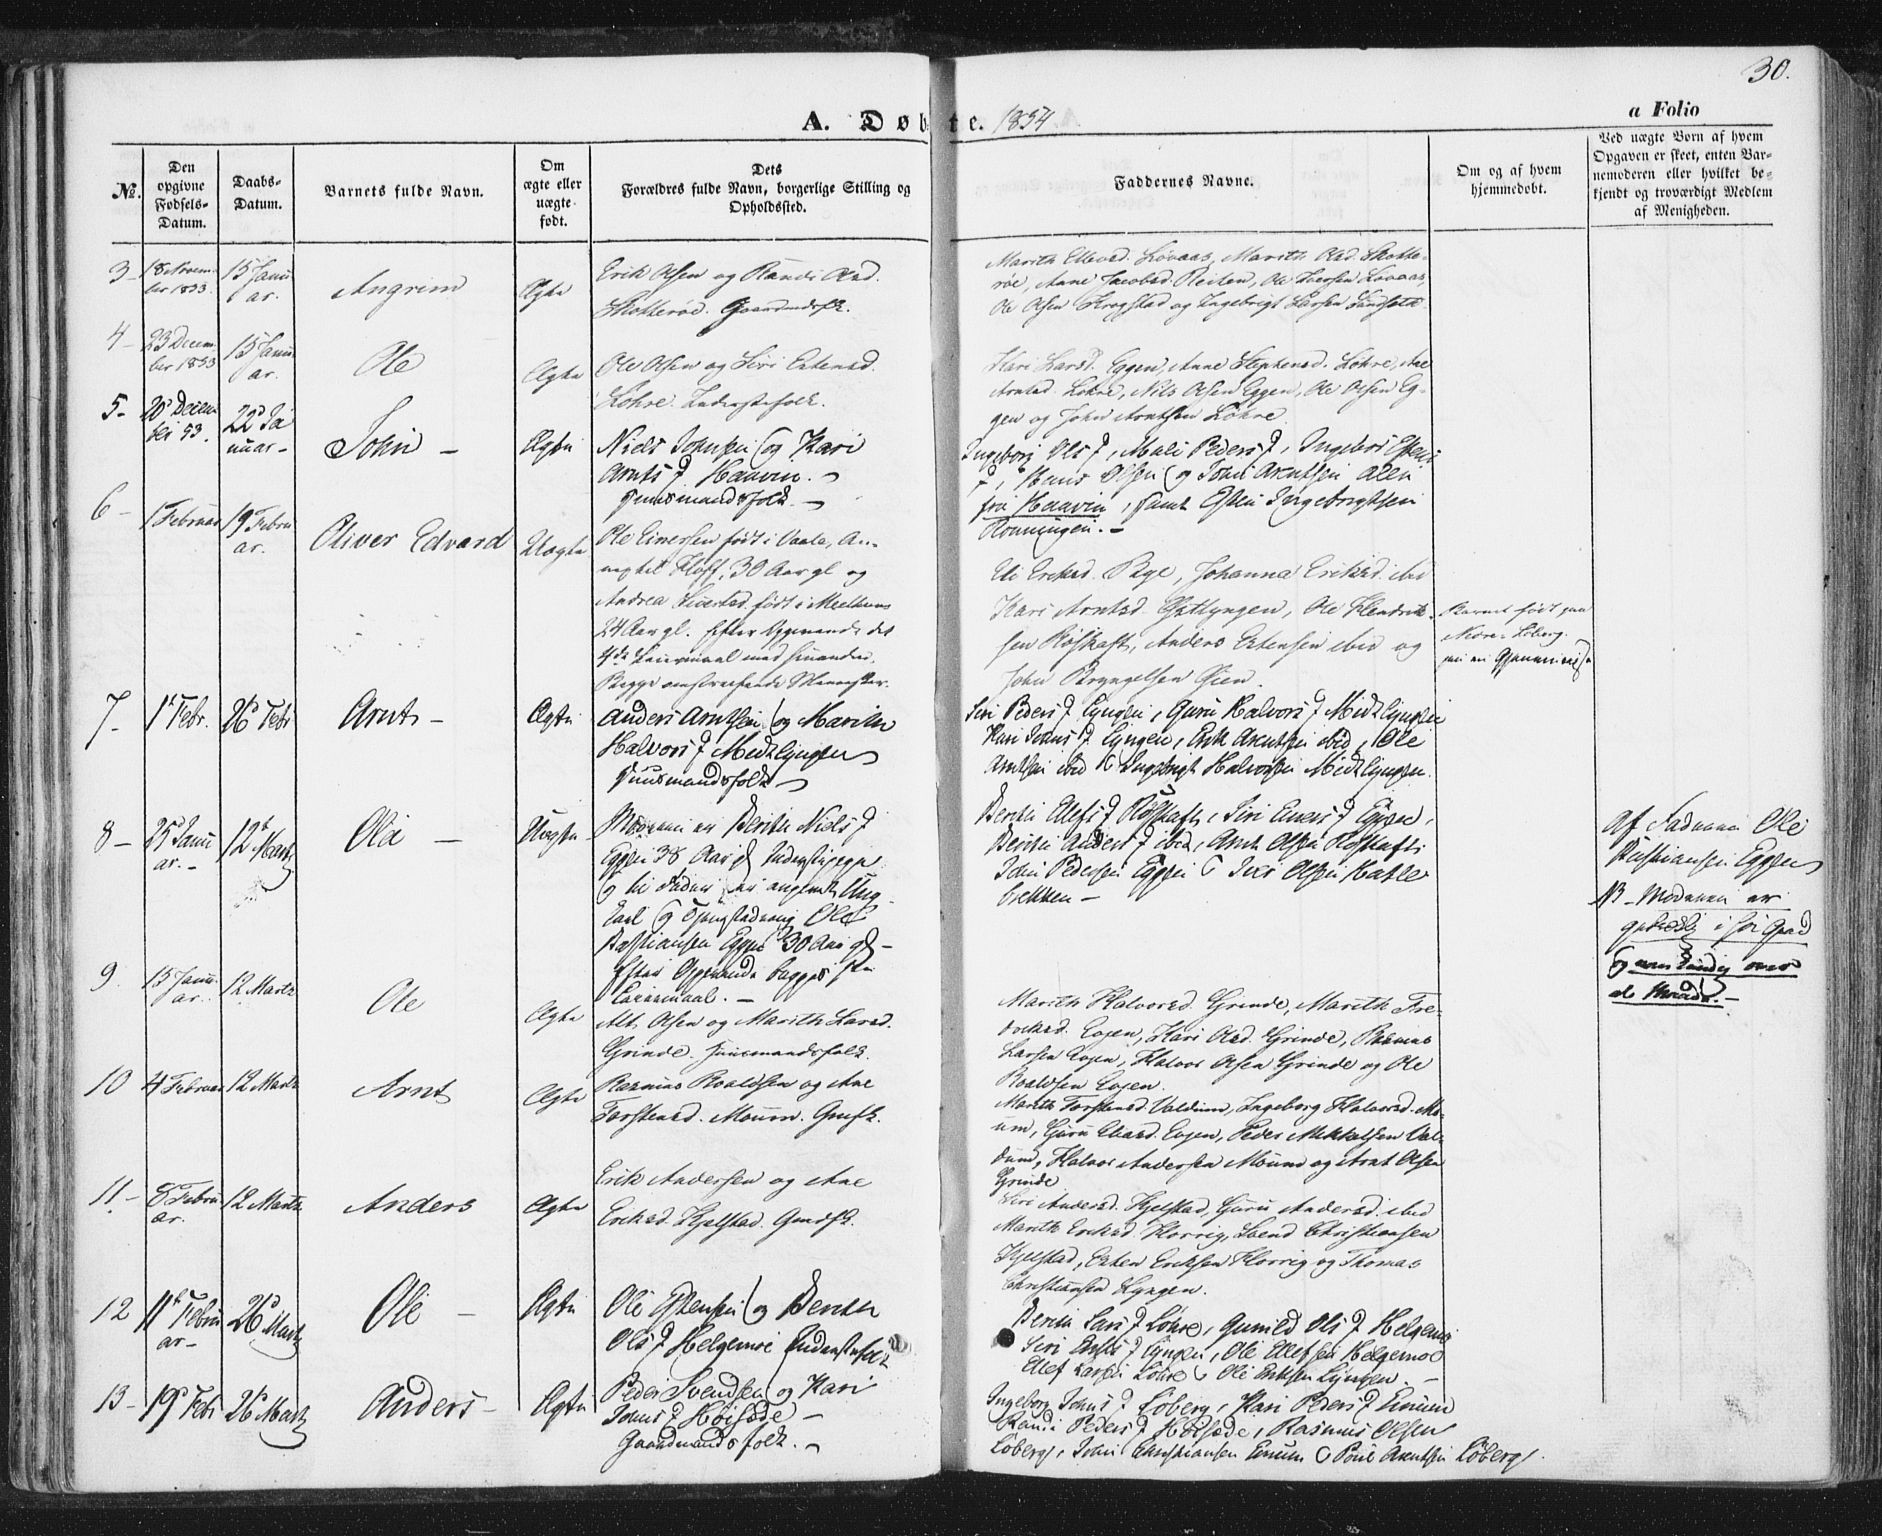 30.
A. Døbte. 1854
a Folio
No.
Den opgivne Fødsels-Datum.
Daabs-Datum.
Barnets fulde Navn.
Om ægte eller uægte født.
Dets Forældres fulde Navn, borgerlige Stilling og Opholdssted.
Faddernes Navne.
Om og af hvem hjemmedøbt.
Ved uægte Børn af hvem Opgaven er skeet, enten Barnemoderen eller hvilket bekjendt og troværdigt Medlem af Menigheden.
3 - 18 Novem-
ber 1853.
15 Janu-
ar.
Angrim
Ægte
Erik Olsen og Randi Olsd.
Skotterøe. Gaardmdsfk.
Marith Ellevsd. Løvaas, Marith Olsd. Skotte-
røe, Anne Jacobsd. Reiten, Ole Larsen Løvaas,
Ole Olsen Krogstad og Ingebrigt Larsen
4 - 23 Decem-
ber 1853
15 Janu-
ar.
Ole
Ægte
Ole Olsen og Siri Estensd.
Løhre. Inderstefolk.
Kari Larsd. Eggen, Anne Stephensd. Løhre, Ane
Arntsd. Løhre, Nils Olsen Eggen, Ole Olsen Eg-
gen og John Arntsen Løhre.
5 - 20 Decem-
ber 53.
22 Ja-
nuar -
John -
Ægte
Niels Johnsen og Kari
Arnts D. Haavin. -
Huusmandsfolk. -
Ingeborg Ols D, Mali Peders D, Ingebor Estens
D, Hans Olsen og John Arntsen Alle
fra Haavin, samt Esten Ingebrigtsen
Rønningen. -
6 - 1 Februar
19 Febru-
ar.
Oliver Edvard
Uægte
Ole Einersen født i Vaale, An-
nexet til Hoff, 30 Aar gl. og
Andrea Sivertsd. født i Melhuus
24 Aar gl. Efter Opgivende det
4de Leiermaal med hinanden.
Begge omstreifende Mennesker.
Eli Eriksd. Bye, Johanna Eriksd. ibid
Kari Arntsd. Gylllyngen, Ole Hendrik-
sen Røskaft, Anders Estensen ibid og
John Bryngelsen Gien.
Barnet født paa
Nordre Løberg
7 - 1 Febr.
26 Febr
Arnt -
Ægte
Anders Arntsen og Marith
Halvors D Midtlyngen
Huusmandsfolk
Siri Peders D Lyngen, Guru Halvors D Midtlyngen
Kari Johns D Lyngen, Erik Arntsen ibid, Ole
Arntsen ibid & Ingebrigt Halvorsen Midtlyngen.
8 - 25 Janu-
ar. -
12 Martz
Ole -
Uægte
Moderen er Berith Niels D
Eggen 38 Aar gl Inderstepige
og til Fader er angivet Ung-
karl og Ole
Bastiansen Eggen 30 Aar gl -
Efter Opgivende begges 1ste
Leiermaal. -
Berith Ellefs D Røskaft, Siri Einers D Eggen,
Berith Anders D ibid, Arnt Olsen Røskaft
John Pedersen Eggen & Iver Olsen Hatle
brekken -
Af Faderen Ole
Bastiansen Eggen
NB - Moderen er
9. 15 Janu-
ar.
12 Martz
Ole
Ægte
Ole Olsen og Marith Larsd.
Grinde. Huusmandsfolk.
Marith Halvorsd. Grinde, Marith Fre-
driksd. Evjen, Kari Olsd. Grinde, Rasmus
Larsen Evjen, Halvor Olsen Grinde og Ole
Roaldsen Evjen.
10 4 Februar
12 Martz
Arnt
Ægte
Rasmus Roaldsen og Ane
Torstensd. Moum. Gmfk.
Marith Torstensd. Valdum, Ingeborg Halvorsd. Mo-
um, Guru Olsd. Evjen, Peder Mikkelsen Val-
dum, Halvor Andersen Moum og Arnt Olsen
Grinde
11 - 8 Febru-
ar.
12 Martz
Anders
Ægte
Erik Andersen og Ane
Eriksd. Kjelstad. Gmdfk.
Siri Andersd. Kjelstad, Guru Andersd. ibid
Marith Eriksd. Horrig, Svend Christiansen
Kjelstad, Esten Eriksen Horrig og Thomas
Christiansen Lyngen.
12 11 Febru-
ar -
26 Martz
Ole -
Ægte
Ole Estensen og Berith
Ols D Helgemoe Inderstefolk
Berith Lars D Løhre, Gunild Ols D Helgemo
Siri Estens D Lyngen, Ole Ellefsen Helgemoe
Ellef Larsen Løhre & Ole Eriksen Lyngen. -
13 - 19 Febr
26 Martz
Anders -
Ægte
Peder Svendsen og Kari
Johns D Høisøde -
Gaardmandsfolk. -
Ingeborg Johns D Løberg, Kari Peders D Emum
Randi Peders D Høisøde, Rasmus Olsen
Løberg, John Christiansen Emum & Povel Arntsen Løberg.